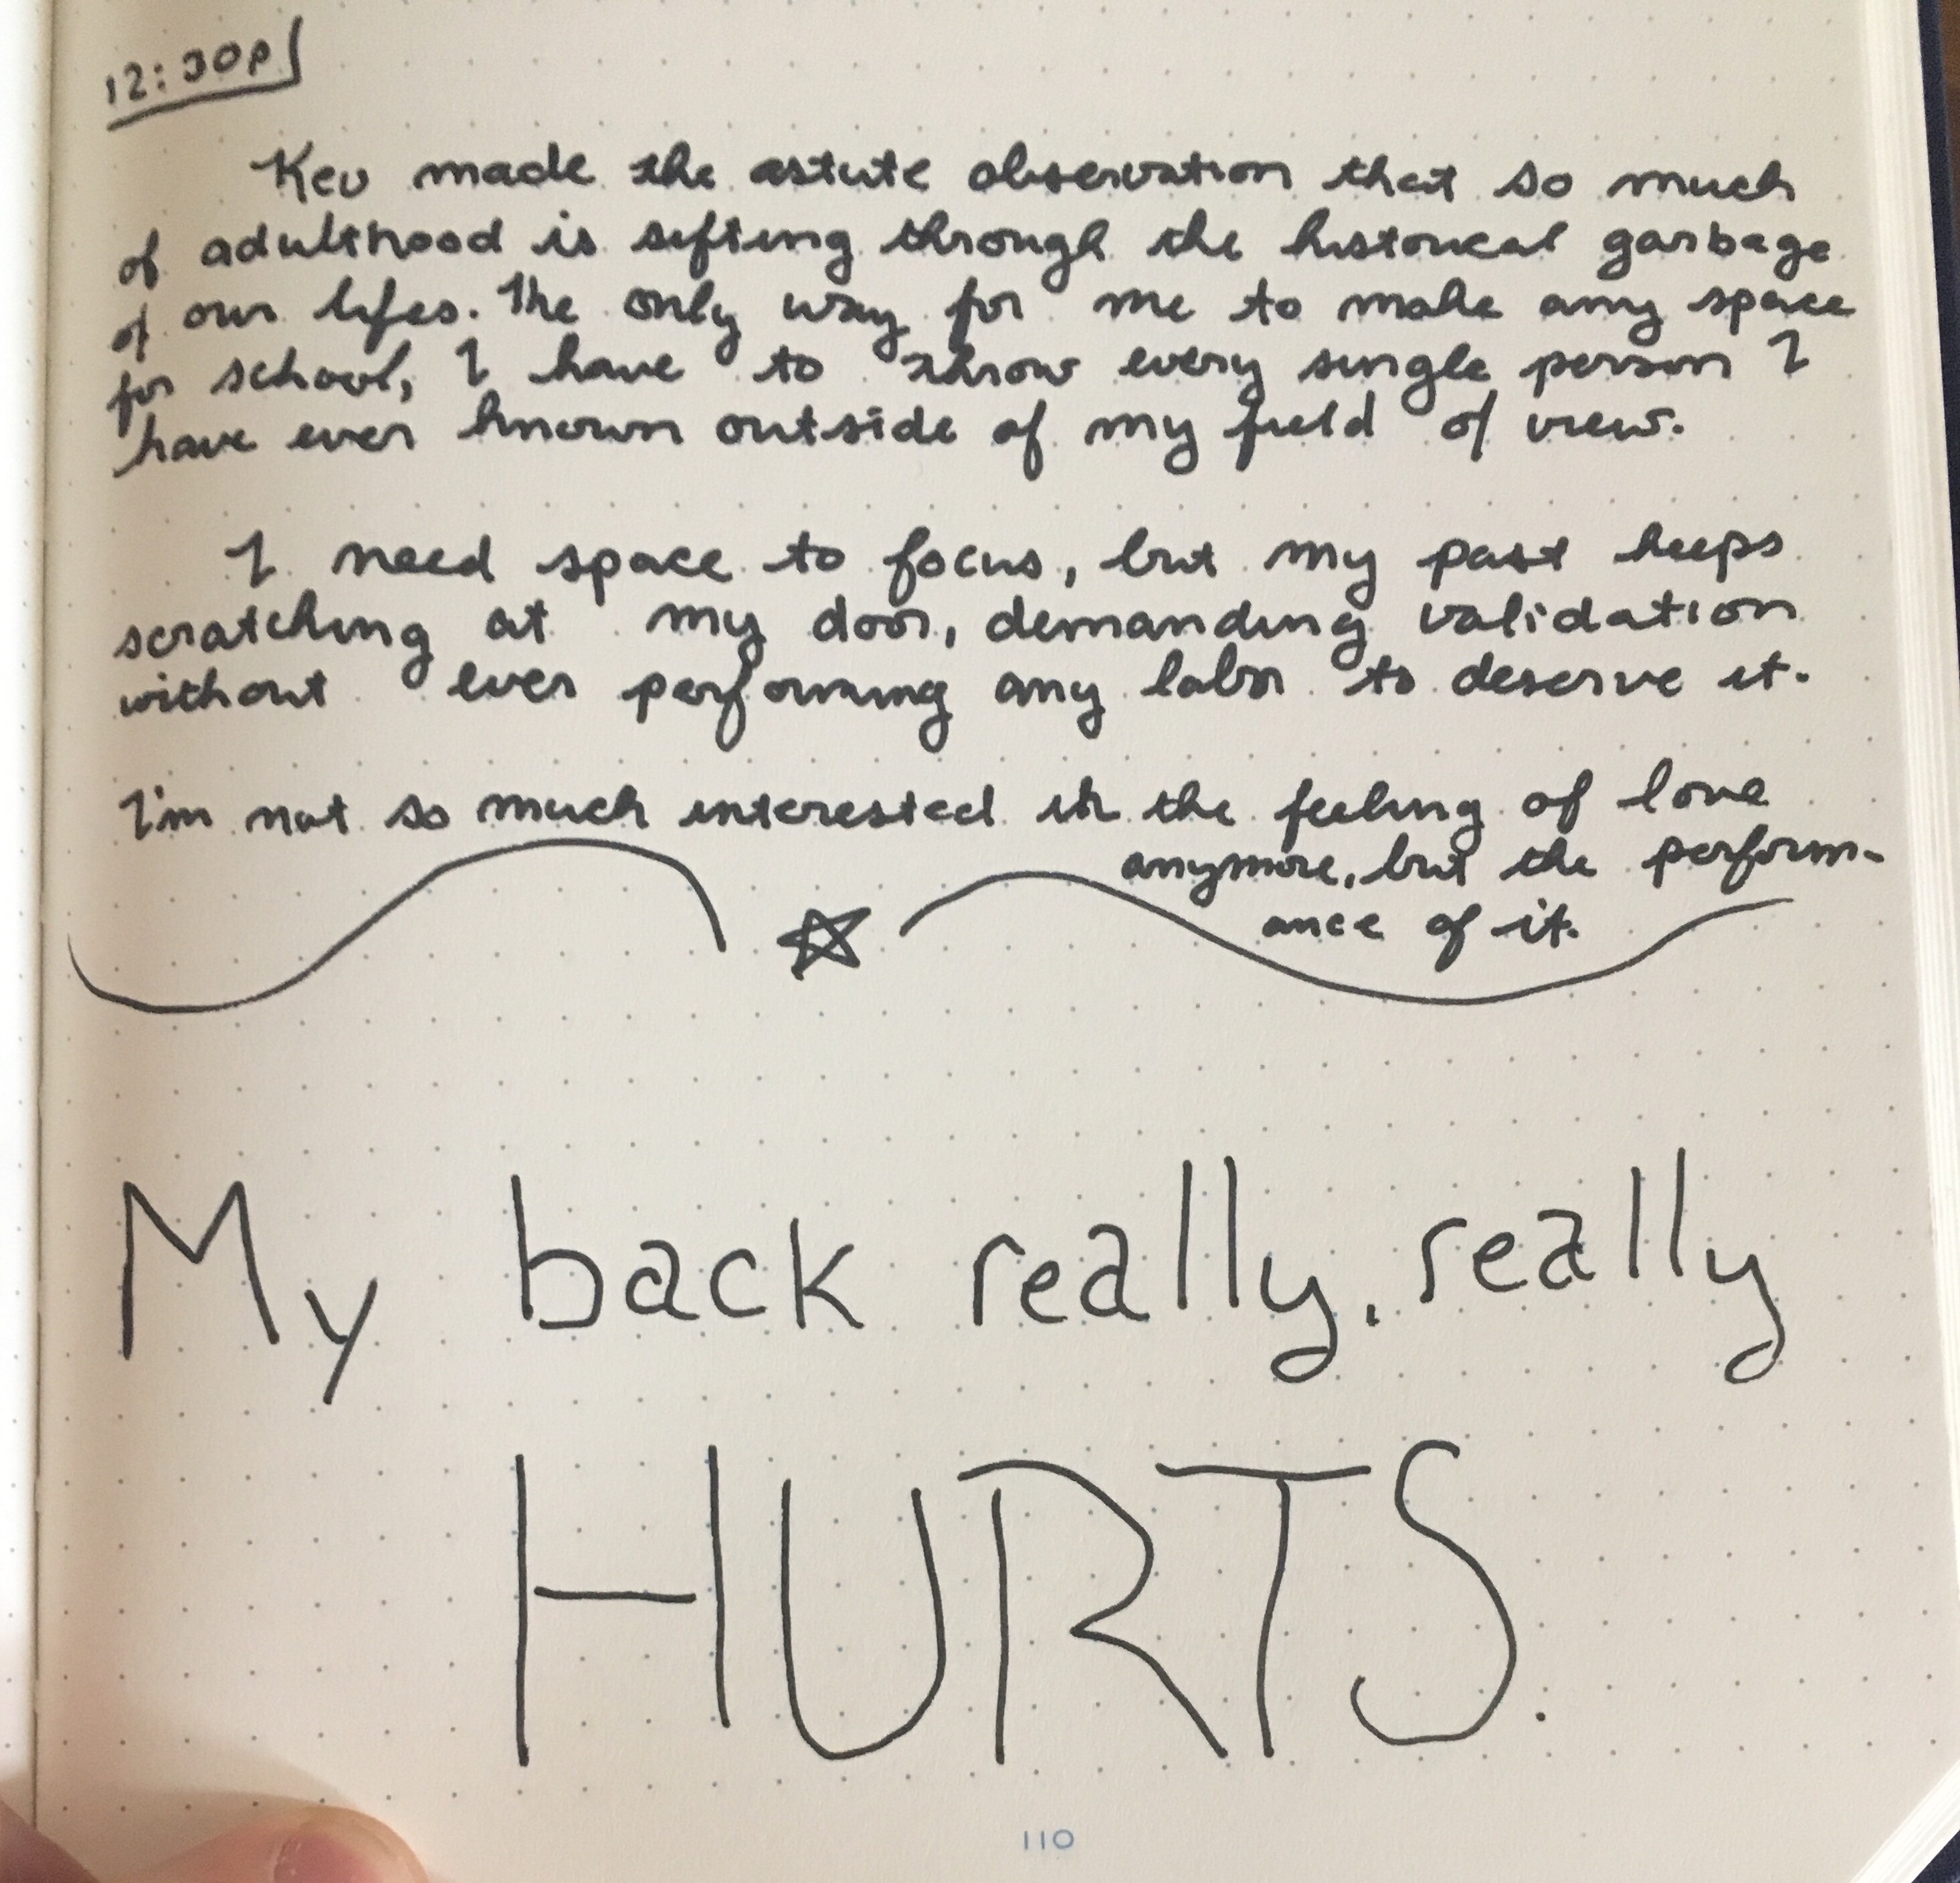 12:30p
Kev made the astute observation that so much
of adulthood is sifting through the historical garbage
of our lifes. The only way for me to make any space
for school, I have to throw every single person I
have ever known outside of my field of view.
I need space to focus, but my past keeps
scratching at my door, demanding validation
without ever performing any labor to deserve it.
I'm not so much interested in the feeling of love
anymore, but the perform-
ance of it.
My back really, really
HURTS.
110